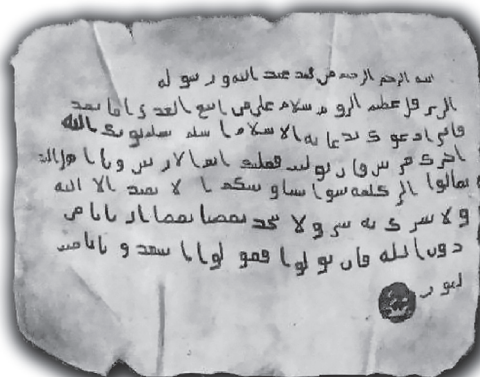 الرحمن الرحيم من محمد عبد الله ورسوله
عظيم الروم سلام على من اتبع الهدى اما بعد
فانى ادعوك بدعاية الاسلام اسلم تسلم يوتك الله
اجرك مرتين فان توليت فعليك اثم
تعالوا الى كلمة سوا بيننا وبينكم ا لا نعبد الا الله
ولا نشرك به ولا يتخذ بعضنا بعضا اربابا من
دون الله فان تولوا فقولوا اشهدوا بانا